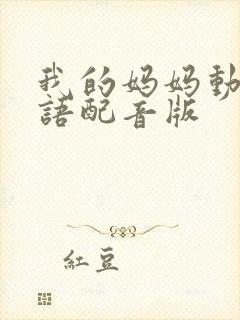 我的妈妈動
語配音版
紅豆